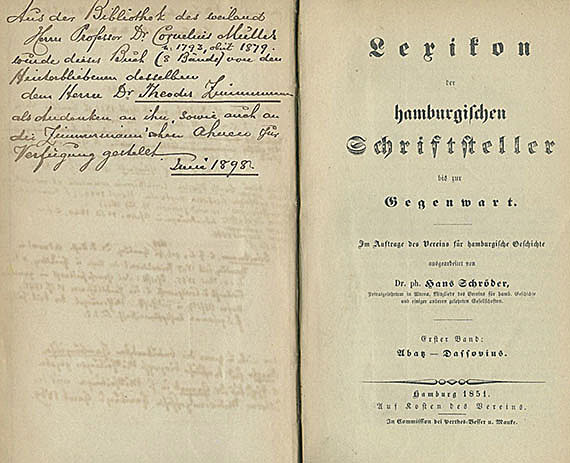 Aus der Bibliothek des weiland
Herrn Professor Dr Cornelius Müller
n. 1793, obiit 1879.
wurde dieses Buch (8 Bände) von den
Hinterbliebenen desselben
dem Herrn Dr Theodor Zimmermann
als Andenken an ihn, sowie auch an
die Zimmermann'schen Ahnen zur
Verfügung gestellt.
Juni 1898.
Lexikon
der
hamburgischen
Schriftsteller
bis zur
Gegenwart.
Im Auftrage des Vereins für hamburgische Geschichte
ausgearbeitet von
Dr. ph. Hans Schröder,
Privatgelehrtem in Altona, Mitgliede des Vereins für hamb. Geschichte
und einiger anderen gelehrten Gesellschaften.
Erster Band:
Abatz – Dassovius.
Hamburg 1851.
Auf Kosten des Vereins.
In Commission bei Perthes-Besser u. Mauke.